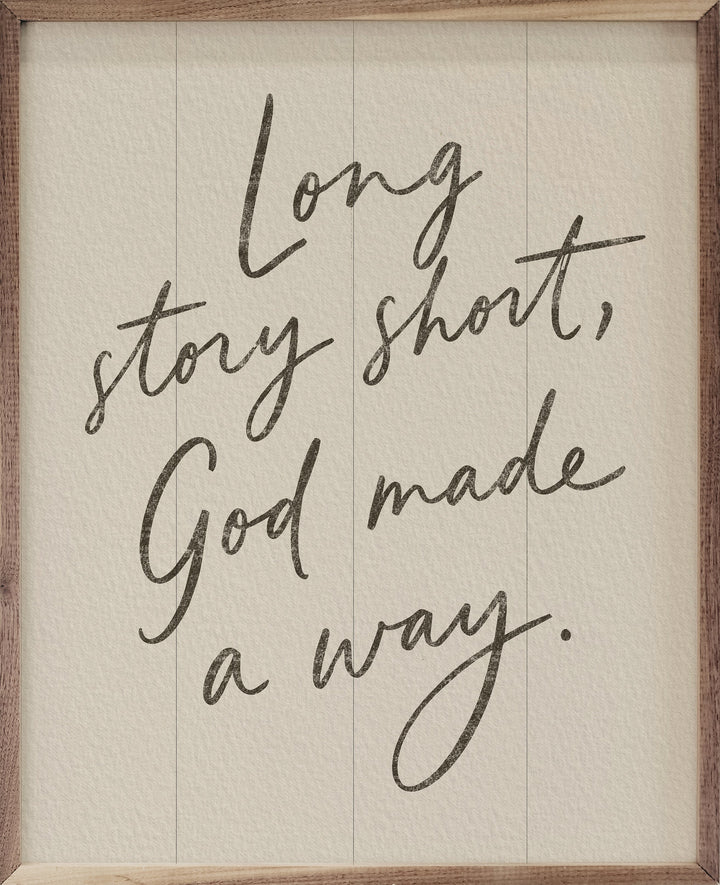 Long
story short,
God made
a way.